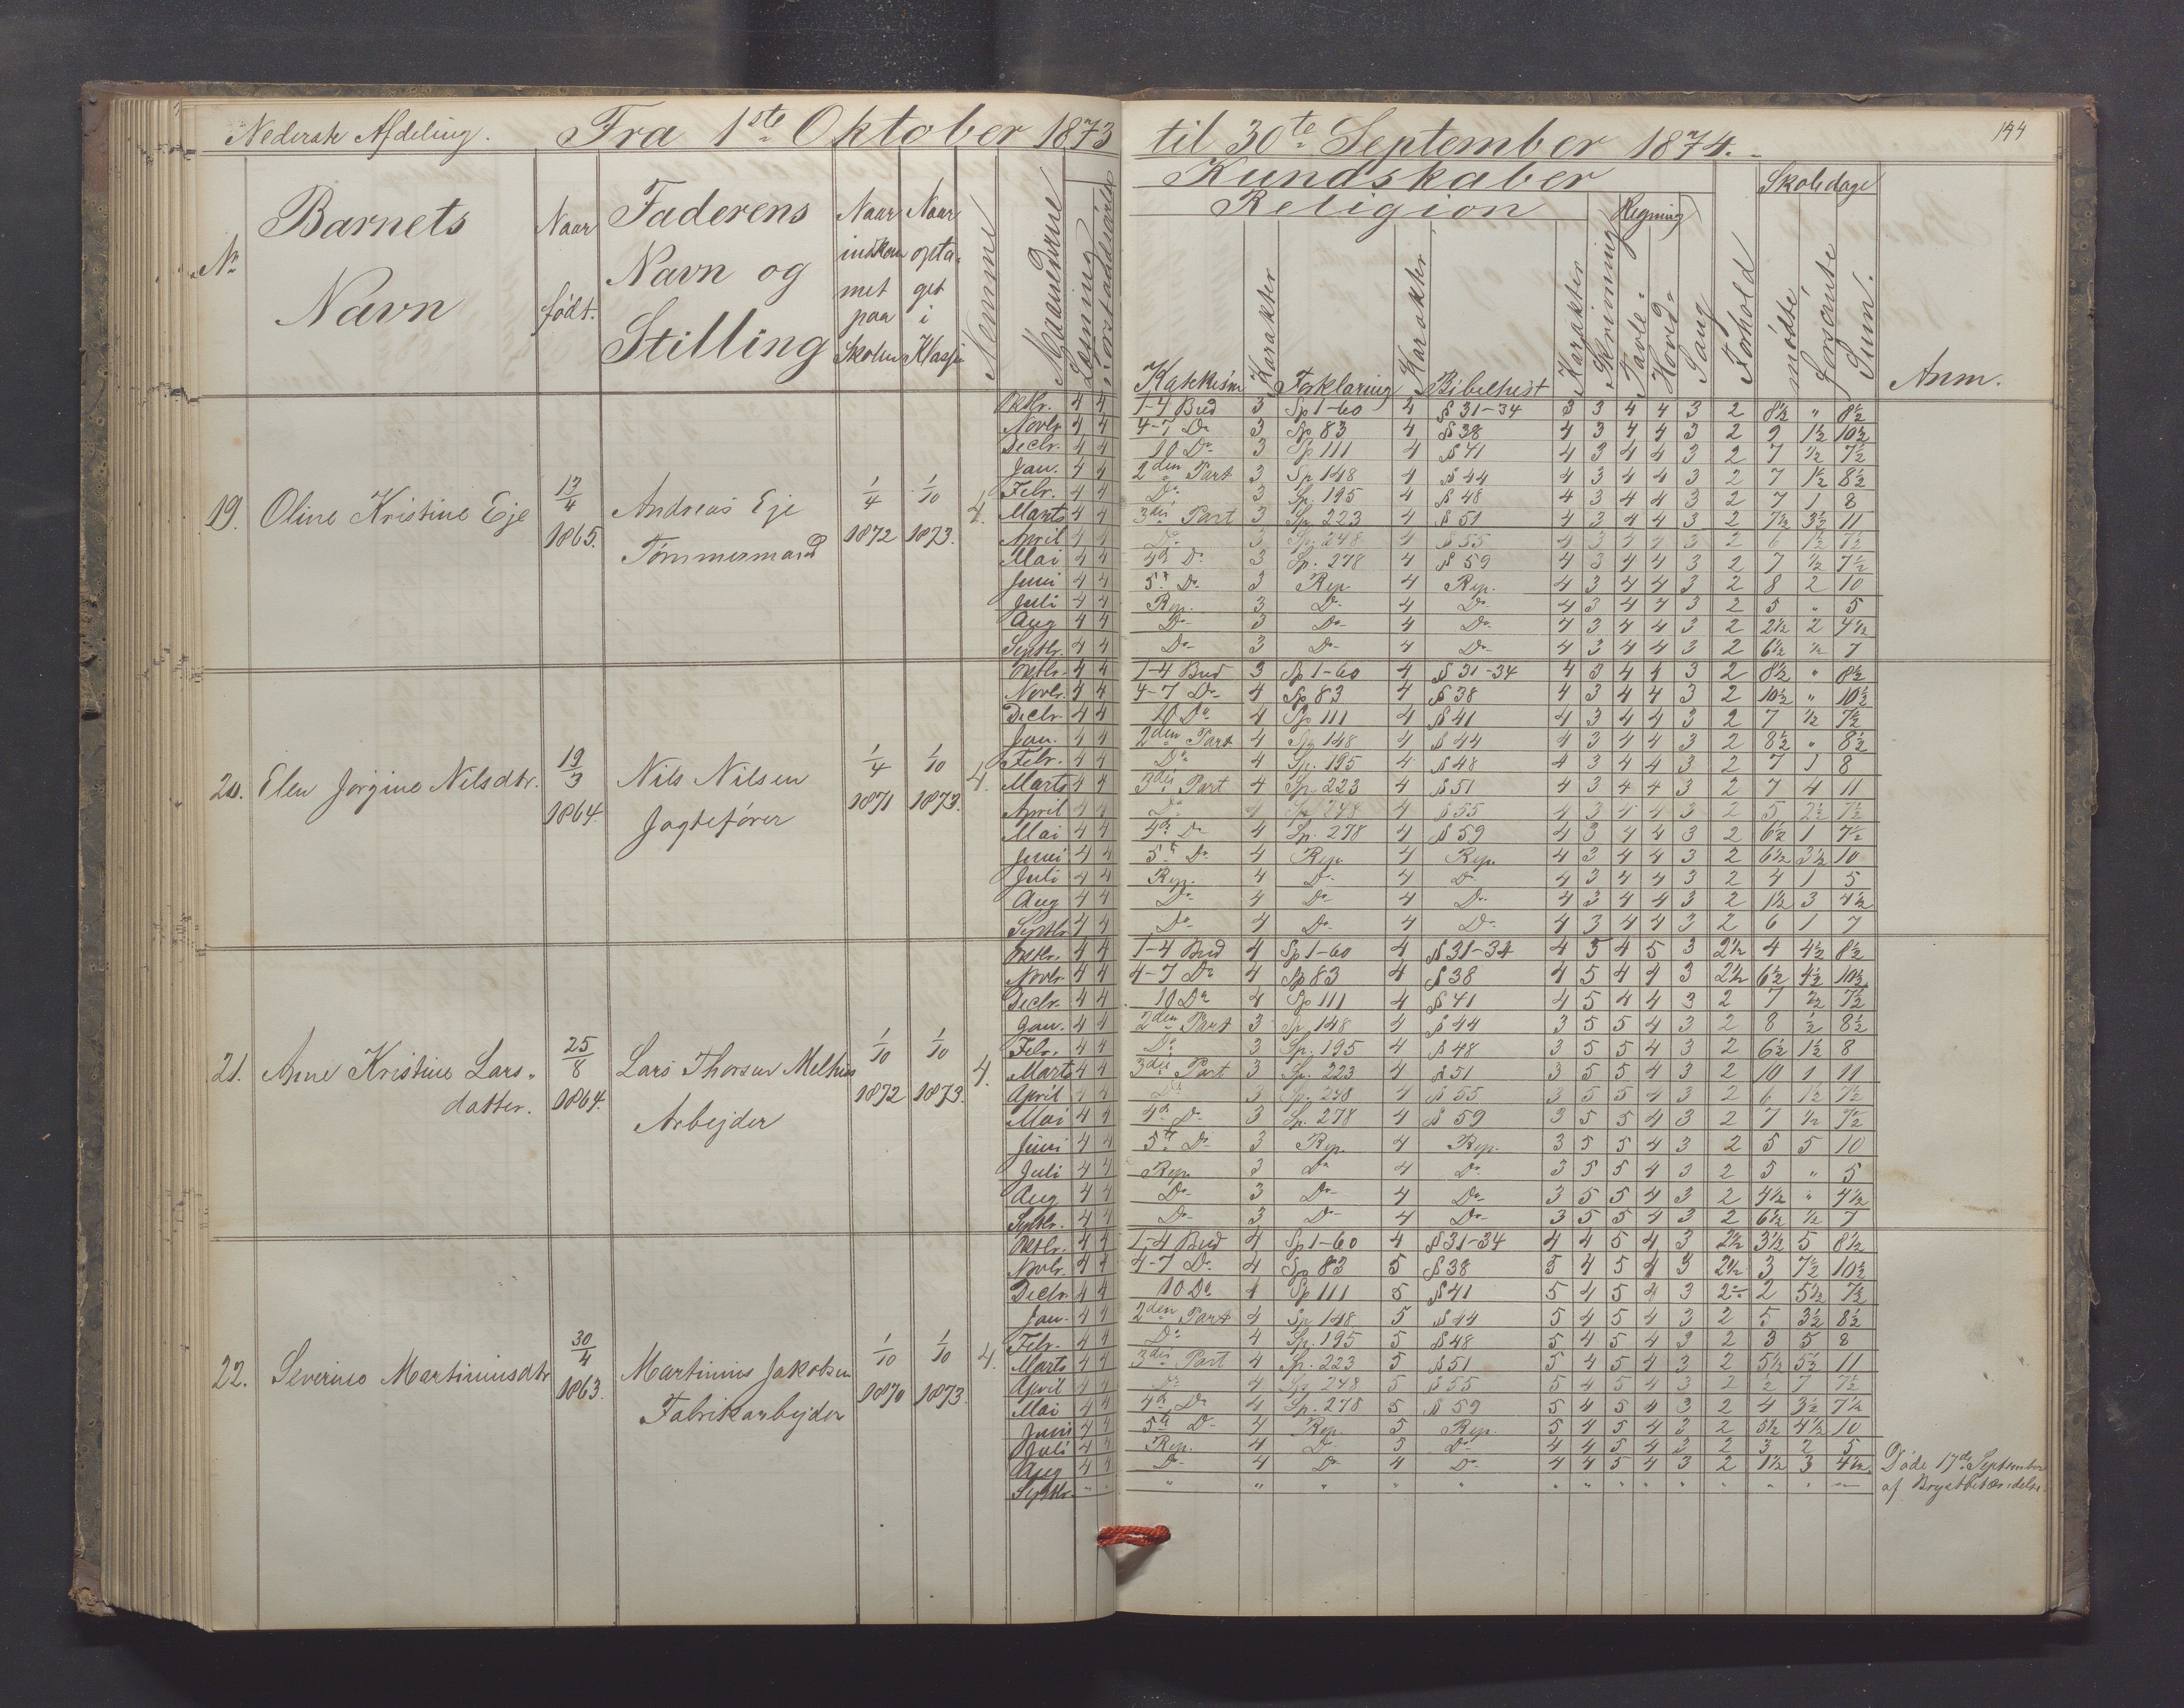 Nederste Afdeling. Fra 1ste Oktober 1873 til 30te September 1874. 144
Kundskaber
Religion Regning Skoledage
No Barnets Navn Naar født. Faderens Navn og Stilling Naar indkommet paa Skolen Naar optaget i Klassen Nemme Maanederne Læsning Forstaaelse Katekism Karakter Forklaring Karakter Bibelhist Karakter Skrivning Tavle- Hoved- Sang Forhold mødte forsømte Sum. Anm.
19. Oline Kristine Eje 17/4 1865. Andreas Eje Tømmermand 1/4 1872 1/10 1873. 4.
Oktbr. 4 4 1-4 Bud 3 Sp 1-60 4 § 31-34 3 3 4 4 3 2 8½ " 8½
Novbr. 4 4 4-7 Do 3 Sp 83 4 § 38 4 3 4 4 3 2 9 1½ 10½
Decbr. 4 4 10 Do 3 Sp 111 4 § 41 4 3 4 4 3 2 7 ½ 7½
Jan. 4 4 2den Part 3 Sp. 148 4 § 44 4 3 4 4 3 2 7 1½ 8½
Febr. 4 4 Do 3 Sp. 195 4 § 48 4 3 4 4 3 2 7 1 8
Marts 4 4 3die Part 3 Sp. 223 4 § 51 4 3 4 4 3 2 7½ 3½ 11
April 4 4 Do 3 Sp. 248 4 § 55 4 3 4 4 3 2 6 1½ 7½
Mai 4 4 4de Do 3 Sp. 278 4 § 59 4 3 4 4 3 2 7 ½ 7½
Juni 4 4 5te Do 3 Rep 4 Rep. 4 3 4 4 3 2 8 2 10
Juli 4 4 Rep. 3 Do 4 Do 4 3 4 4 3 2 5 " 5
Aug 4 4 Do 3 Do 4 Do 4 3 4 4 3 2 2½ 2 4½
Septbr. 4 4 Do 3 Do 4 Do 4 3 4 4 3 2 6½ ½ 7
20. Elen Jørgine Nilsdtr. 19/3 1864. Nils Nilsen Jagtefører 1/4 1871 1/10 1873. 4.
Oktbr. 4 4 1-4 Bud 3 Sp 1-60 4 § 31-34 4 3 4 4 3 2 8½ " 8½
Novbr. 4 4 4-7 Do 4 Sp 83 4 § 38 4 3 4 4 3 2 10½ " 10½
Decbr. 4 4 10 Do 4 Sp 111 4 § 41 4 3 4 4 3 2 7 ½ 7½
Jan. 4 4 2den Part 4 Sp. 148 4 § 44 4 3 4 4 3 2 8½ " 8½
Febr. 4 4 Do 4 Sp. 195 4 § 48 4 3 4 4 3 2 7 1 8
Marts 4 4 3die Part 4 Sp. 223 4 § 51 4 3 4 4 3 2 7 4 11
April 4 4 Do 4 Sp. 248 4 § 55 4 3 4 4 3 2 5 2½ 7½
Mai 4 4 4de Do 4 Sp. 278 4 § 59 4 3 4 4 3 2 6½ 1 7½
Juni 4 4 5te Do 4 Rep. 4 Rep. 4 3 4 4 3 2 6½ 3½ 10
Juli 4 4 Rep. 4 Do 4 Do 4 3 4 4 3 2 4 1 5
Aug 4 4 Do 4 Do 4 Do 4 3 4 4 3 2 1½ 3 4½
Septbr 4 4 Do 4 Do 4 Do 4 3 4 4 3 2 6 1 7
21. Anne Kristine Lars-datter. 25/8 1864. Lars Thorsen Melhus Arbejder 1/10 1872 1/10 1873. 4.
Oktbr. 4 4 1-4 Bud 4 Sp 1-60 4 § 31-34 4 5 4 5 3 2½ 4 4½ 8½
Novbr 4 4 4-7 Do 4 Sp 83 4 § 38 4 5 4 4 3 2½ 6½ 4½ 10½
Decbr. 4 4 10 Do 4 Sp 111 4 § 41 4 5 4 4 3 2 7 ½ 7½
Jan. 4 4 2den Part 3 Sp 148 4 § 44 3 5 5 4 3 2 8 ½ 8½
Febr. 4 4 Do 3 Sp. 195 4 § 48 3 5 5 4 3 2 6½ 1½ 8
Marts 4 4 3die Part 3 Sp. 223 4 § 51 3 5 5 4 3 2 10 1 11
April 4 4 Do 3 Sp. 248 4 § 55 3 5 5 4 3 2 6 1½ 7½
Mai 4 4 4de Do 3 Sp. 278 4 § 59 3 5 5 4 3 2 7 ½ 7½
Juni 4 4 5te Do 3 Rep. 4 Rep. 3 5 5 4 3 2 5 5 10
Juli 4 4 Rep. 3 Do 4 Do 3 5 5 4 3 2 5 " 5
Aug 4 4 Do 3 Do 4 Do 3 5 5 4 3 2 4½ " 4½
Septbr. 4 4 Do 3 Do 4 Do 3 5 5 4 3 2 6½ ½ 7
22. Severine Martinusdtr 30/4 1863. Martinus Jakobsen Fabrikarbejder 1/10 1870 1/10 1873. 4.
Oktbr. 4 4 1-4 Bud 4 Sp 1-60 4 § 31-34 4 4 5 4 3 2½ 3½ 5 8½
Novbr. 4 4 4-7 Do 4 Sp 83 5 § 38 5 4 5 4 3 2½ 3 7½ 10½
Decbr 4 4 10 Do 4 Sp 111 5 § 41 5 4 5 4 3 2 2 5½ 7½
Jan. 4 4 2den Part 4 Sp 148 5 § 44 5 4 5 4 3 2 5 3½ 8½
Febr. 4 4 Do 4 Sp. 195 5 § 48 5 4 5 4 3 2 3 5 8
Marts 4 4 3die Part 4 Sp. 223 5 § 51 5 4 5 4 3 2 5½ 5½ 11
April 4 4 Do 4 Sp. 248 5 § 55 5 4 5 4 3 2 ½ 7 7½
Mai 4 4 4de Do 4 Sp. 278 5 § 59 5 4 5 4 3 2 4 3½ 7½
Juni 4 4 5te Do 4 Rep. 5 Rep. 5 4 5 4 3 2 5½ 4½ 10
Juli 4 4 Rep. 4 Do 5 Do 4 4 5 4 3 2 3 2 5
Aug 4 4 Do 4 Do 4 Do 4 4 5 4 3 2 1½ 3 4½ Døde 17de September
Septbr. " " " " " " " " " " " " " " " " af Brystbetændelse.